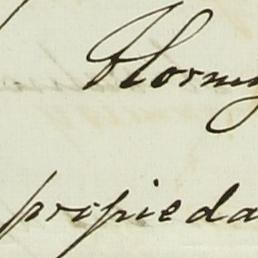 Horm
propieda